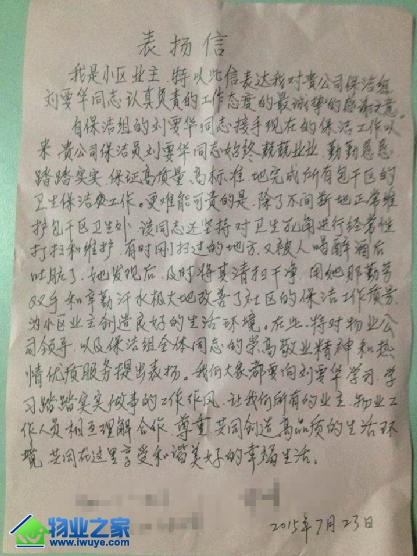 表扬信
我是小区业主,特以此信表达我对贵公司保洁组
刘要华同志认真负责的工作态度的最诚挚的感谢之意
自保洁组的刘要华同志接手现在的保洁工作以
来,贵公司保洁员刘要华同志始终兢兢业业,勤勤恳恳
踏踏实实,保证高质量,高标准地完成所有包干区的
卫生保洁工作。更难能可贵的是,除了不间断地正常维
护包干区卫生外,该同志还坚持对卫生死角进行经常性
打扫和维护,有时刚扫过的地方,又被人喝醉酒后
吐脏了,她发现后,及时将其清扫干净,用她那勤劳
双手和辛勤汗水极大地改善了社区的保洁工作质量
为小区业主创造良好的生活环境。在此,特对物业公
司领导以及保洁组全体同志的崇高敬业精神和热
情优质服务提出表扬。我们大家都要向刘要华学习,学
习踏踏实实做事的工作作风,让我们所有的业主,物业工
作人员相互理解合作,尊重,共同创造高品质的生活环
境,共同在这里享受和谐美好的幸福生活。
2015年7月23日
物业之家
www.iwuye.com